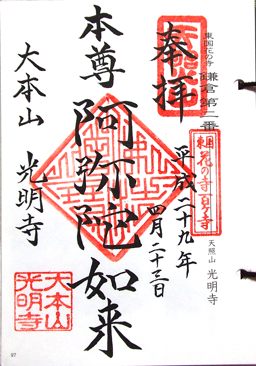 東国花の寺
鎌倉第二番
天照山 光明寺
奉拝
平成二十九年
四月二十三日
東国花の寺百ヶ寺
本尊
阿弥陀如来
大本山 光明寺
大本山
光明寺
97